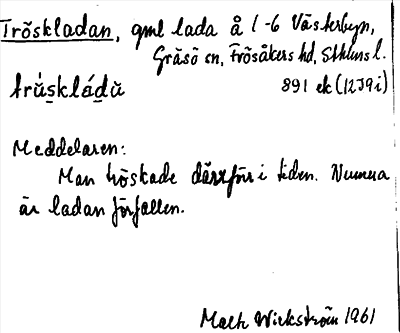 Tröskladan, gml lada å 1-6 Västerbyn,
Gräsö sn, Frösåkers hd, Sthlms l.
891 ek (12J9i)
Meddelaren:
Man tröskade därför i tiden. Numera
är ladan förfallen.
Mats Wickström 1961